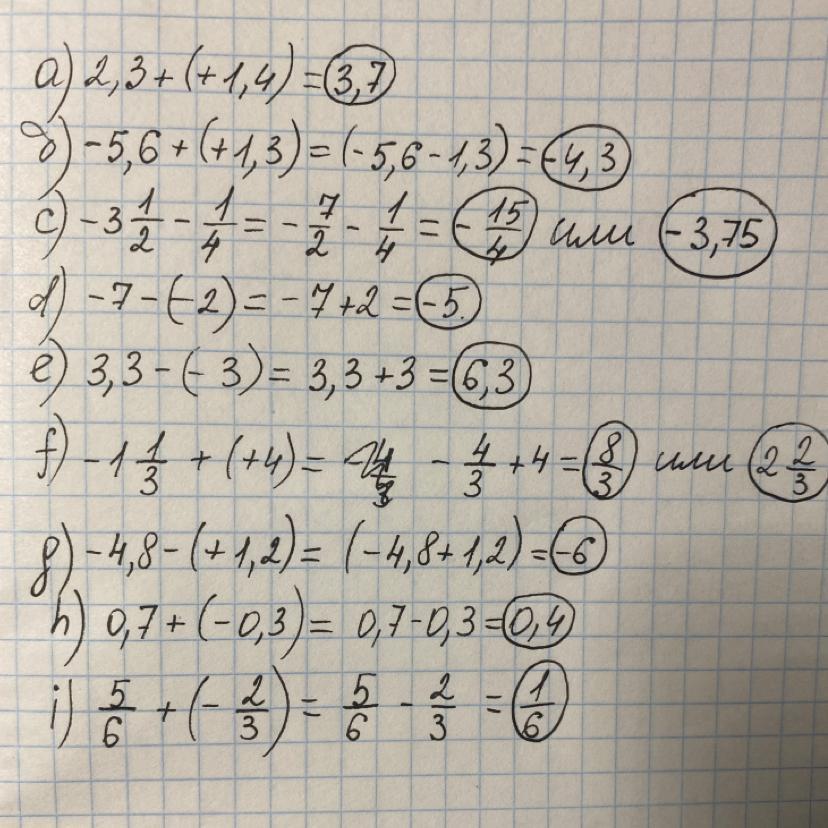 a) 2,3 + (+1,4) = 3,7
б) -5,6 + (+1,3) = (-5,6 - 1,3) = -4,3
c) -3 1/2 - 1/4 = - 7/2 - 1/4 = - 15/4 или -3,75
d) -7 - (-2) = -7 + 2 = -5.
e) 3,3 - (-3) = 3,3 + 3 = 6,3
f) -1 1/3 + (+4) = - 4/3 + 4 = 8/3 или 2 2/3
g) -4,8 - (+1,2) = (-4,8 + 1,2) = -6
h) 0,7 + (-0,3) = 0,7 - 0,3 = 0,4
i) 5/6 + (- 2/3) = 5/6 - 2/3 = 1/6